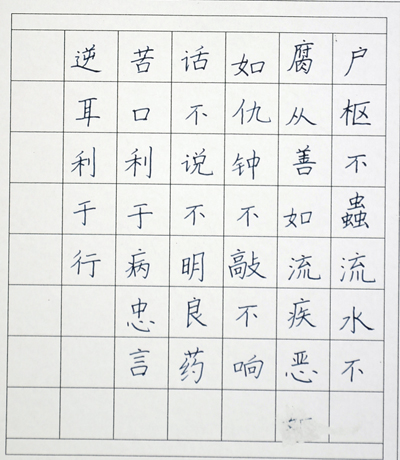 户枢不蟲流水不
腐从善如流疾恶
如仇钟不敲不响
话不说不明良药
苦口利于病忠言
逆耳利于行